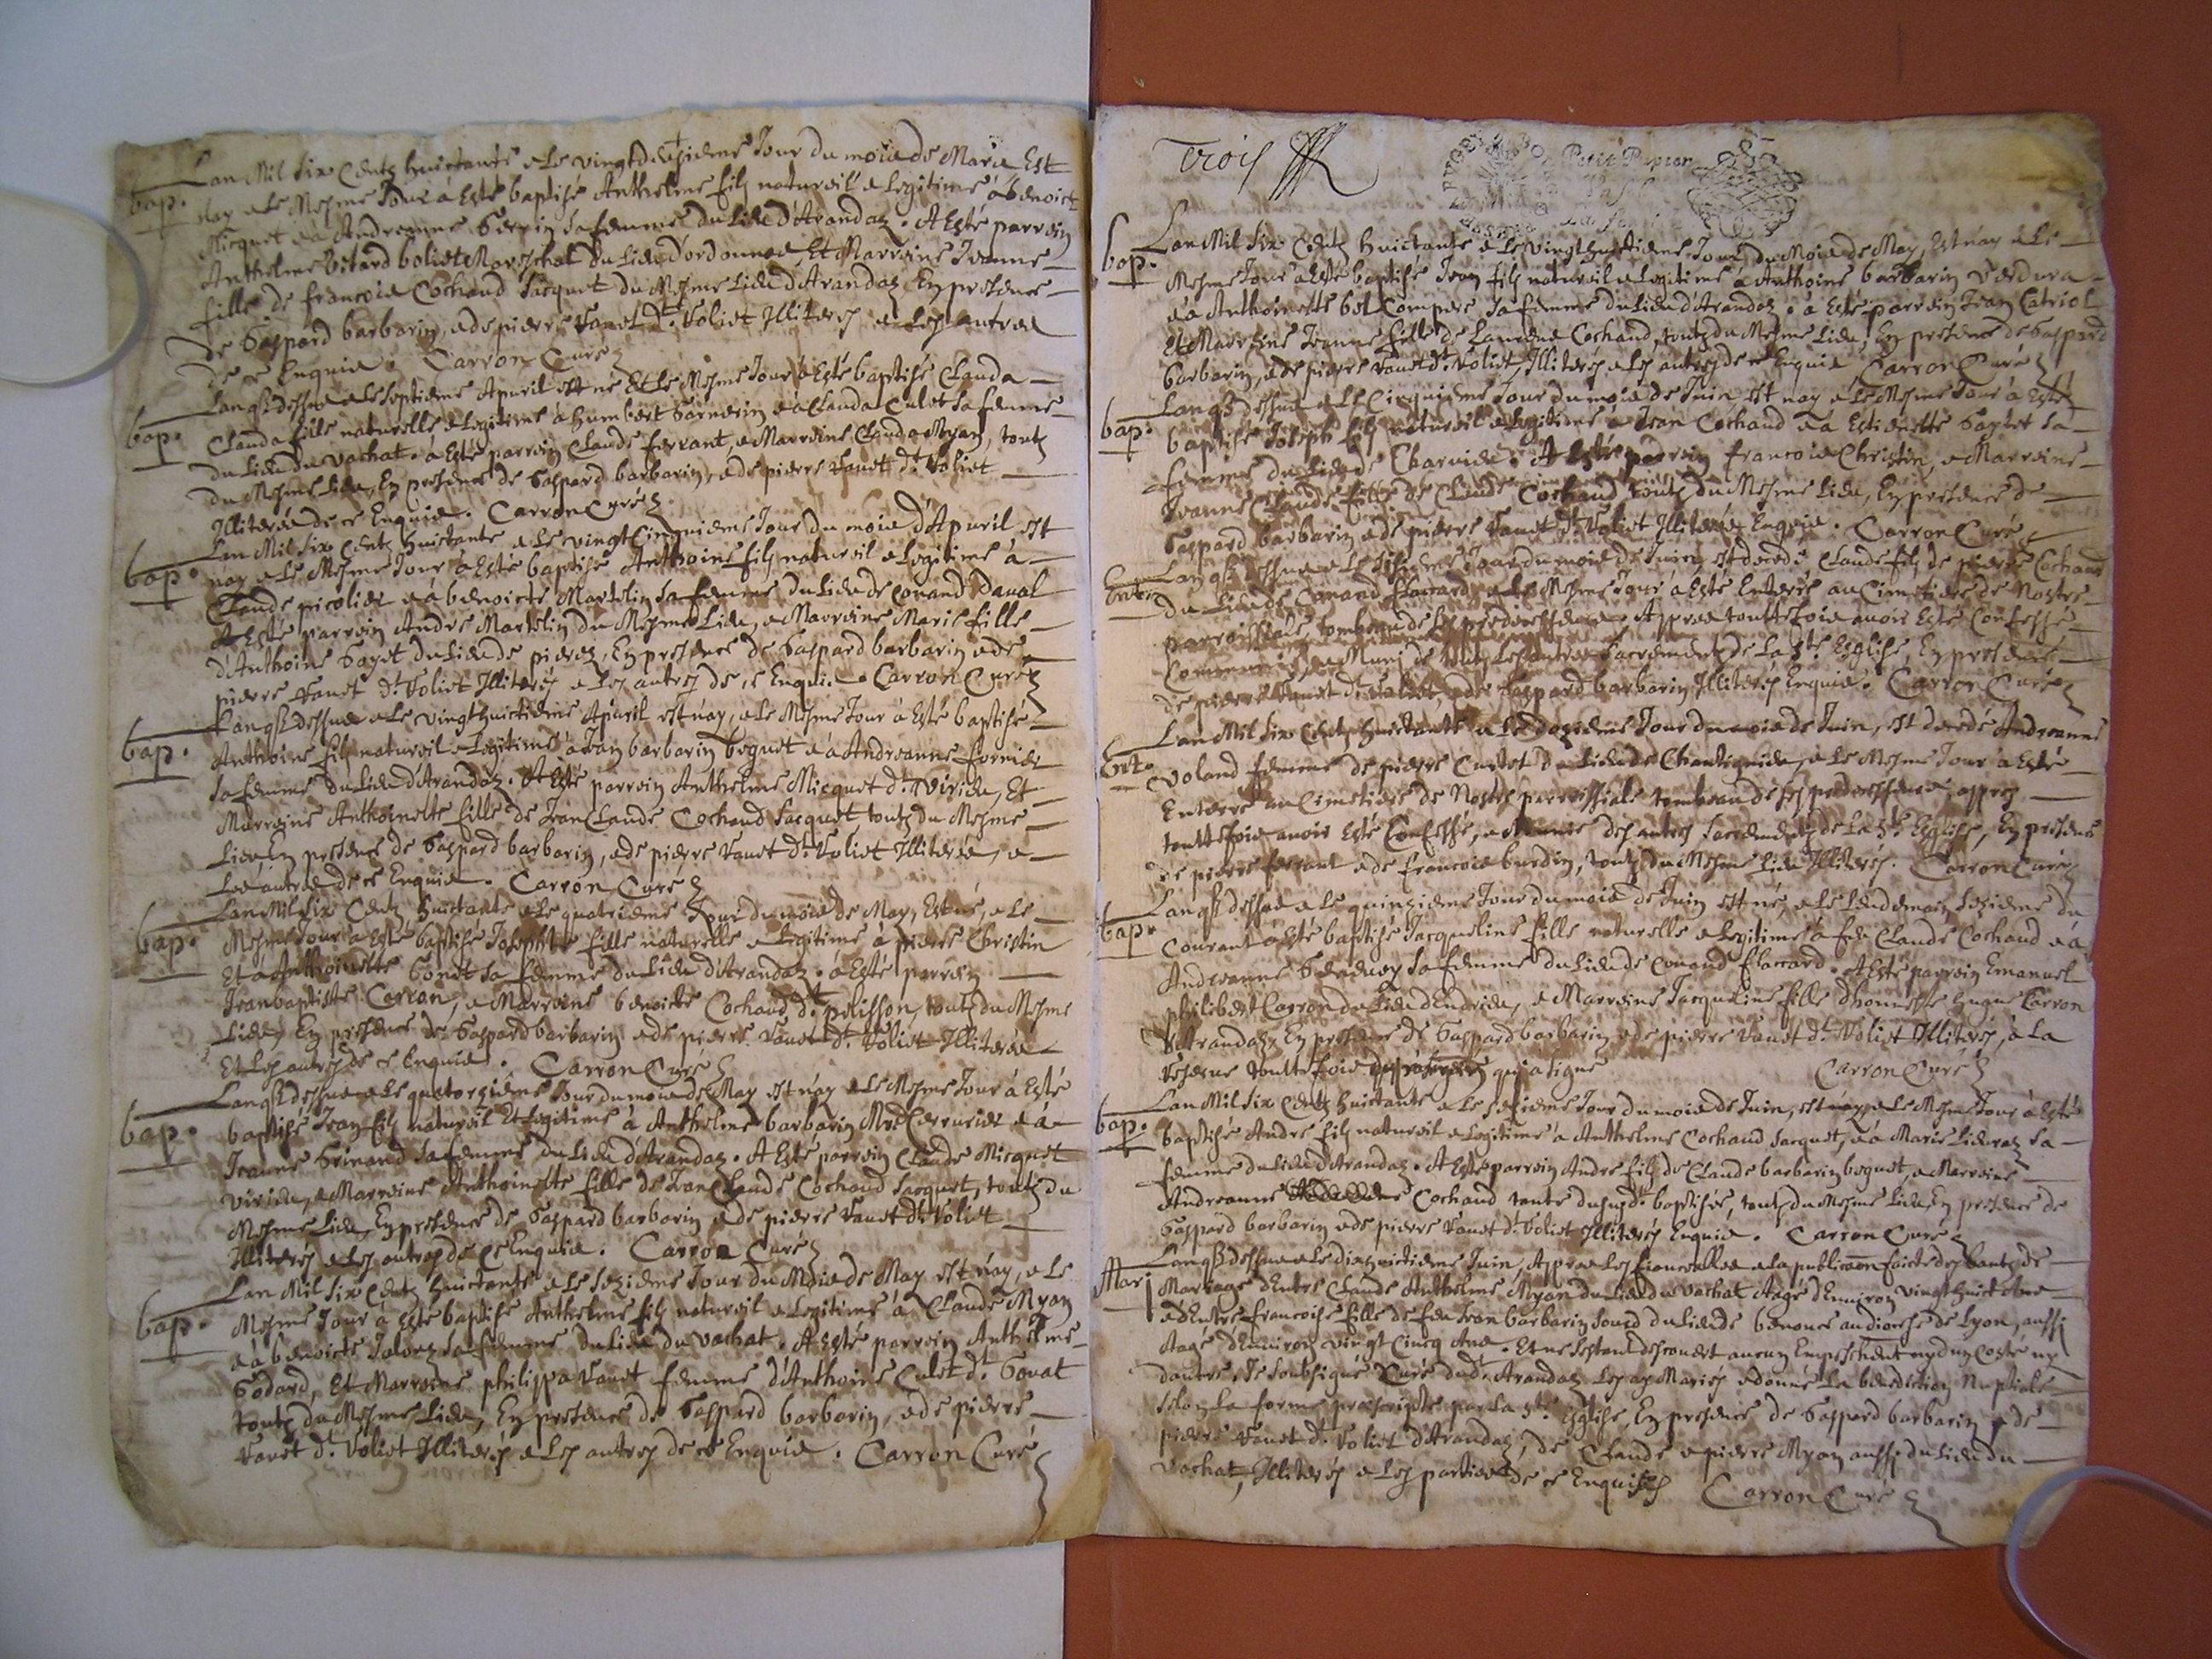 Lan Mil Six Centz huictante & Le vingtdeuxieme Jour du mois de Mars Est
bap. nay & Le Mesme Jour a Esté baptisé Anthelme filz naturel & Legitime à benoict
Micquet & à Andreanne sa femme du Lieu d'Arandaz. A Esté parrein
Anthelme Mareschal du Lieu d'ordonnaz Et Marreine Jeanne
fille de francois Cochand Jacquet du Mesme Lieu d'Arandaz En presence
de Gaspard barbarin, & de pierre Vanet dt. Voliet Illiterés & Les autres
de ce Enquis. Carron Curé
Lan q. dessus & Le septieme Apuril Est né Et Le Mesme Jour a Esté baptisé Clauda
bap. Clauda fille naturelle & Legitime à humbert Garnerin & à Clauda Culet sa femme
du Lieu du vachat. à Esté parrein Claude ferrant, & Marreine Clauda Myan, toutz
du Mesme Lieu, En presence de Gaspard barbarin, & de pierre Vanet dt. Voliet
Illiterés de ce Enquis. Carron Curé
Lan Mil Six Centz huictante & Le vingt Cinquieme Jour du mois d'Apuril est
bap. nay & Le Mesme Jour a Esté baptisé Anthoine filz naturel & Legitime à
Claude picolier & à benoicte Martelin sa femme du Lieu de Conand Daval
A Esté parrein André Martelin du Mesme Lieu, & Marreine Marie fille
d'Anthoine Gayet du Lieu de En presence de Gaspard barbarin & de
pierre Vanet dt. Voliet Illiterés & Les autres de ce Enquis. Carron Curé
Lan q. dessus & Le vingthuictieme Apuril est nay, & Le Mesme Jour a Esté baptisé
bap. Anthoine filz naturel & Legitime à Jean barbarin boguet & à Andreanne fornier
sa femme du Lieu d'Arandaz. A Esté parrein Anthelme Micquet dt. Virieu, Et
Marreine Anthoinette fille de Jean Claude Cochand Jacquet toutz du Mesme
Lieu En presence de Gaspard barbarin, & de pierre Vanet dt. Voliet Illiterés, &
Les autres de ce Enquis. Carron Curé
Lan Mil Six Centz huictante & Le quatrieme Jour du mois de May, Est né, & Le
bap. Mesme Jour a Esté baptisé Josephte fille naturelle & Legitime à pierre Christin
Et à Anthoinette Gonet sa femme du Lieu d'Arandaz. à Esté parrein
Jean baptiste Carron, & Marreine benoicte Cochand dt. pelisson, toutz du Mesme
Lieu, En presence de Gaspard barbarin & de pierre Vanet dt. Voliet Illiterés
Et Les autres de ce Enquis. Carron Curé
Lan q. dessus & Le quatorzieme Jour du mois de May est nay & Le Mesme Jour à Esté
bap. baptisé Jean filz naturel Et Legitime à Anthelme barbarin Mre Serrurier & à
Jeanne Grinand sa femme du Lieu d'Arandaz. A Esté parrein Claude Micquet
Virieu, & Marreine Anthoinette fille de Jean Claude Cochand Jacquet, toutz du
Mesme Lieu, En presence de Gaspard barbarin & de pierre Vanet dt. Voliet
Illiterés & Les autres de ce Enquis. Carron Curé
Lan Mil Six Centz huictante & Le sezieme Jour du Mois de May est nay, & Le
bap. Mesme Jour a Esté baptisé Anthelme filz naturel & Legitime à Claude Myan
& à benoicte sa femme du Lieu du vachat. A Esté parrein Anthelme
Godard, Et Marreine philippa Vanet femme d'Anthoine Culet dt. Gonat
toutz du Mesme Lieu, En presence de Gaspard barbarin, & de pierre
Vanet dt. Voliet Illiterés & Les autres de ce Enquis. Carron Curé
Trois
Petit Papier
Lan Mil Six Centz huictante & Le vingthuictieme Jour du Mois de May, Est nay & Le
bap. Mesme Jour a Esté baptisé Jean filz naturel & Legitime à Anthoine barbarin Verdura
& à Anthoinette bel Compere sa femme du Lieu d'Arandaz. à Esté parrein Jean Catriol
Et Marreine Jeanne fille de Laurens Cochand, toutz du Mesme Lieu, En presence de Gaspard
barbarin, & de pierre Vanet dt. Voliet, Illiterés & Les autres de ce Enquis. Carron Curé
Lan q. dessus & Le Cinquieme Jour du mois de Juin est nay & Le Mesme Jour a Esté
bap. baptisé Joseph filz naturel & Legitime à Jean Cochand & à Estiennette Gaylet sa
femme du Lieu de Charvieu. A Esté parrein francois Christin, & Marreine
Jeanne Claude fille de Claude Cochand toutz du Mesme Lieu, En presence de
Gaspard barbarin & de pierre Vanet dt. Voliet Illiterés Enquis. Carron Curé
Lan q. dessus & Le Jour du mois de Juin, est decedé Claude filz de pierre Cochand
Enter. du Lieu de Conand flaccard & Le Mesme Jour a Esté Enterré au Cimetiere de Nostre
parroissiale, tombeau de ses predecesseurs. Appres touttefois avoir Esté Confessé
Communié & Muni de toutz Les autres sacrements de La Ste. Esglise En presence
de pierre Vanet dt. Voliet, & de Gaspard barbarin Illiterés Enquis. Carron Curé
Lan Mil Six Centz huictante & Le dozieme Jour du mois de Juin, est decedé Andreanne
Ent. Voland femme de pierre Curtet du Lieu de Chantiguieu, & Le Mesme Jour a Esté
Enterré au Cimetiere de Nostre parroissiale tombeau de ses predecesseurs, appres
touttefois avoir Esté Confessé, & Munie des autres sacrements de La Ste. Esglise, En presence
de pierre ferrant & de francois burdin, toutz du Mesme Lieu Illiterés. Carron Curé
Lan q. dessus & Le quinzieme Jour du mois de Juin est né, & Le Lendemain sezieme du
bap. Courant a Esté baptisé Jacqueline fille naturelle & Legitime à feu Claude Cochand & à
Andreanne sa femme du Lieu de Conand flaccard. A Esté parrein Emanuel
philibert Carron du Lieu & Marreine Jacqueline fille d'honneste hugue Carron
d'Arandaz, En presence de Gaspard barbarin & de pierre Vanet dt. Voliet Illiterés, à La
reserve touttefois qui a signé
Carron Curé
Lan Mil Six Centz huictante & Le sezieme Jour du mois de Juin, est nay & Le Mesme Jour a Esté
bap. baptisé André filz naturel & Legitime à Anthelme Cochand Jacquet, & à Marie sa
femme du Lieu d'Arandaz. A Esté parrein André filz de Claude barbarin boguet, & Marreine
Andreanne Cochand tante dususd. baptisé, toutz du Mesme Lieu, En presence de
Gaspard barbarin & de pierre Vanet dt. Voliet Illiterés Enquis. Carron Curé
Lan q. dessus & Le dixhuictieme Juin, Appres Les fiancialles & La publicaon faicte des bantz de
Mar Mariage d'Entre Claude Anthelme Myan du Lieu du vachat Aagé d'Environ vingthuict ans
& d'Entre francoise fille de feu Jean barbarin Sourd du Lieu de benonce au diocese de Lyon, aussi
Aagé d'Environ vingt Cinq Ans. Et ne s'estant descouvert aucun Empeschement ny d'un Costé ny
dautre, Je soubsigné Curé dud. Arandaz Les ay Mariés & donné La benediction Nuptiale
selon La forme prescripte par La Ste. Esglise En presence de Gaspard barbarin & de
pierre Vanet dt. Voliet d'Arandaz, de Claude & pierre Myan aussi du Lieu du
vachat, Illiterés & Les parties de ce Enquises Carron Curé